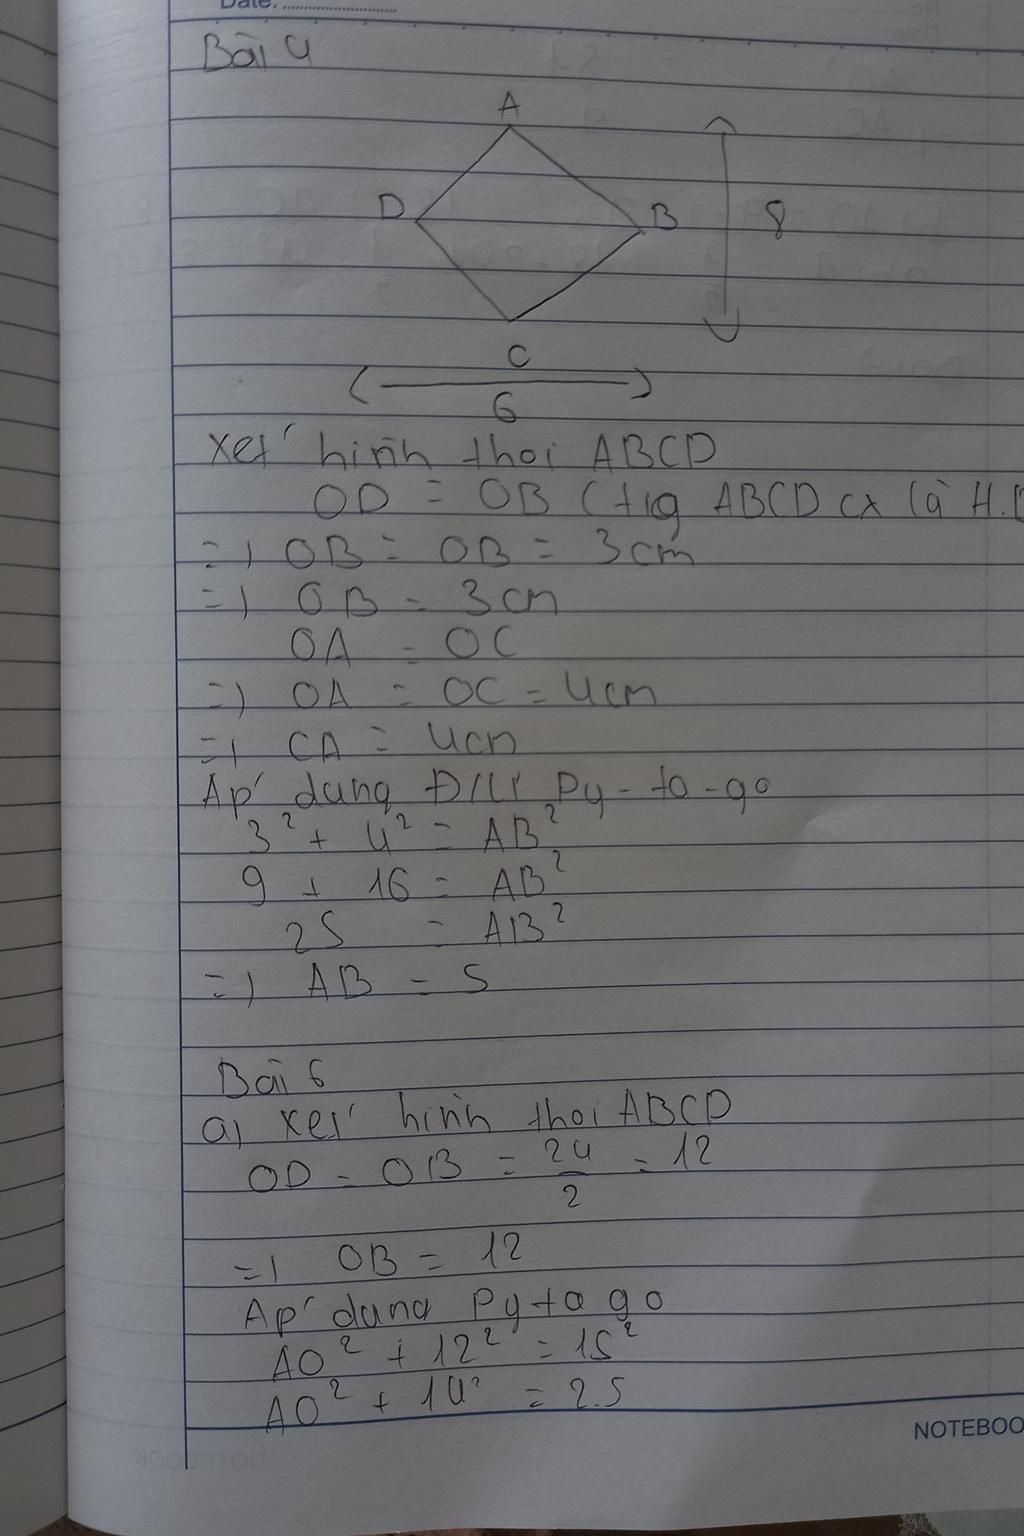 Date:
Bài 4
A
D
B
8
C
6
Xét hình thoi ABCD
OD = OB (
ABCD cx là H.
=) OB = OB = 3cm
=) OB = 3cm
OA = OC
=) OA = OC = 4cm
=) CA = 4cm
Áp dung Đ/lí Py-ta-go
3² + 4² = AB²
9 + 16 = AB²
25 = AB²
=) AB = 5
Bài 6
a) Xét hình thoi ABCD
OD = OB = 24/2 = 12
=) OB = 12
Áp dung Py ta go
AO² + 12² = 15²
AO² + 14² = 2.5
NOTEBOO